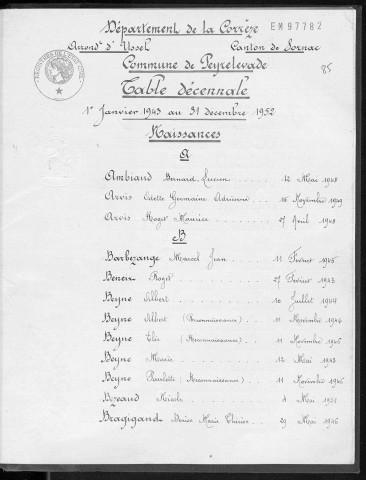 Département de la Corrèze
EM97782
Arrondt d'Ussel Canton de Sornac
Commune de Peyrelevade
85
Table décennale
1er Janvier 1943 au 31 decembre 1952
Naissances
A
Ambiaud Bernard Lucien 12 Mai 1948
Arvis Odette Germaine Adrienne 16 Novembre 1949
Arvis Roger Maurice 27 Avril 1948
B
Barbezange Marcel Jean 11 Février 1945
Beneix Roger 27 Février 1943
Beyne Albert 10 Juillet 1944
Beyne Albert (Reconnaissance) 11 Novembre 1946
Beyne (Reconnaissance) 11 Novembre 1946
Beyne Marie 12 Mai 1943
Beyne Paulette (Reconnaissance) 11 Novembre 1946
Bezeaud Nicole 4 Mai 1951
Bragigand Denise Marie 29 Mai 1946